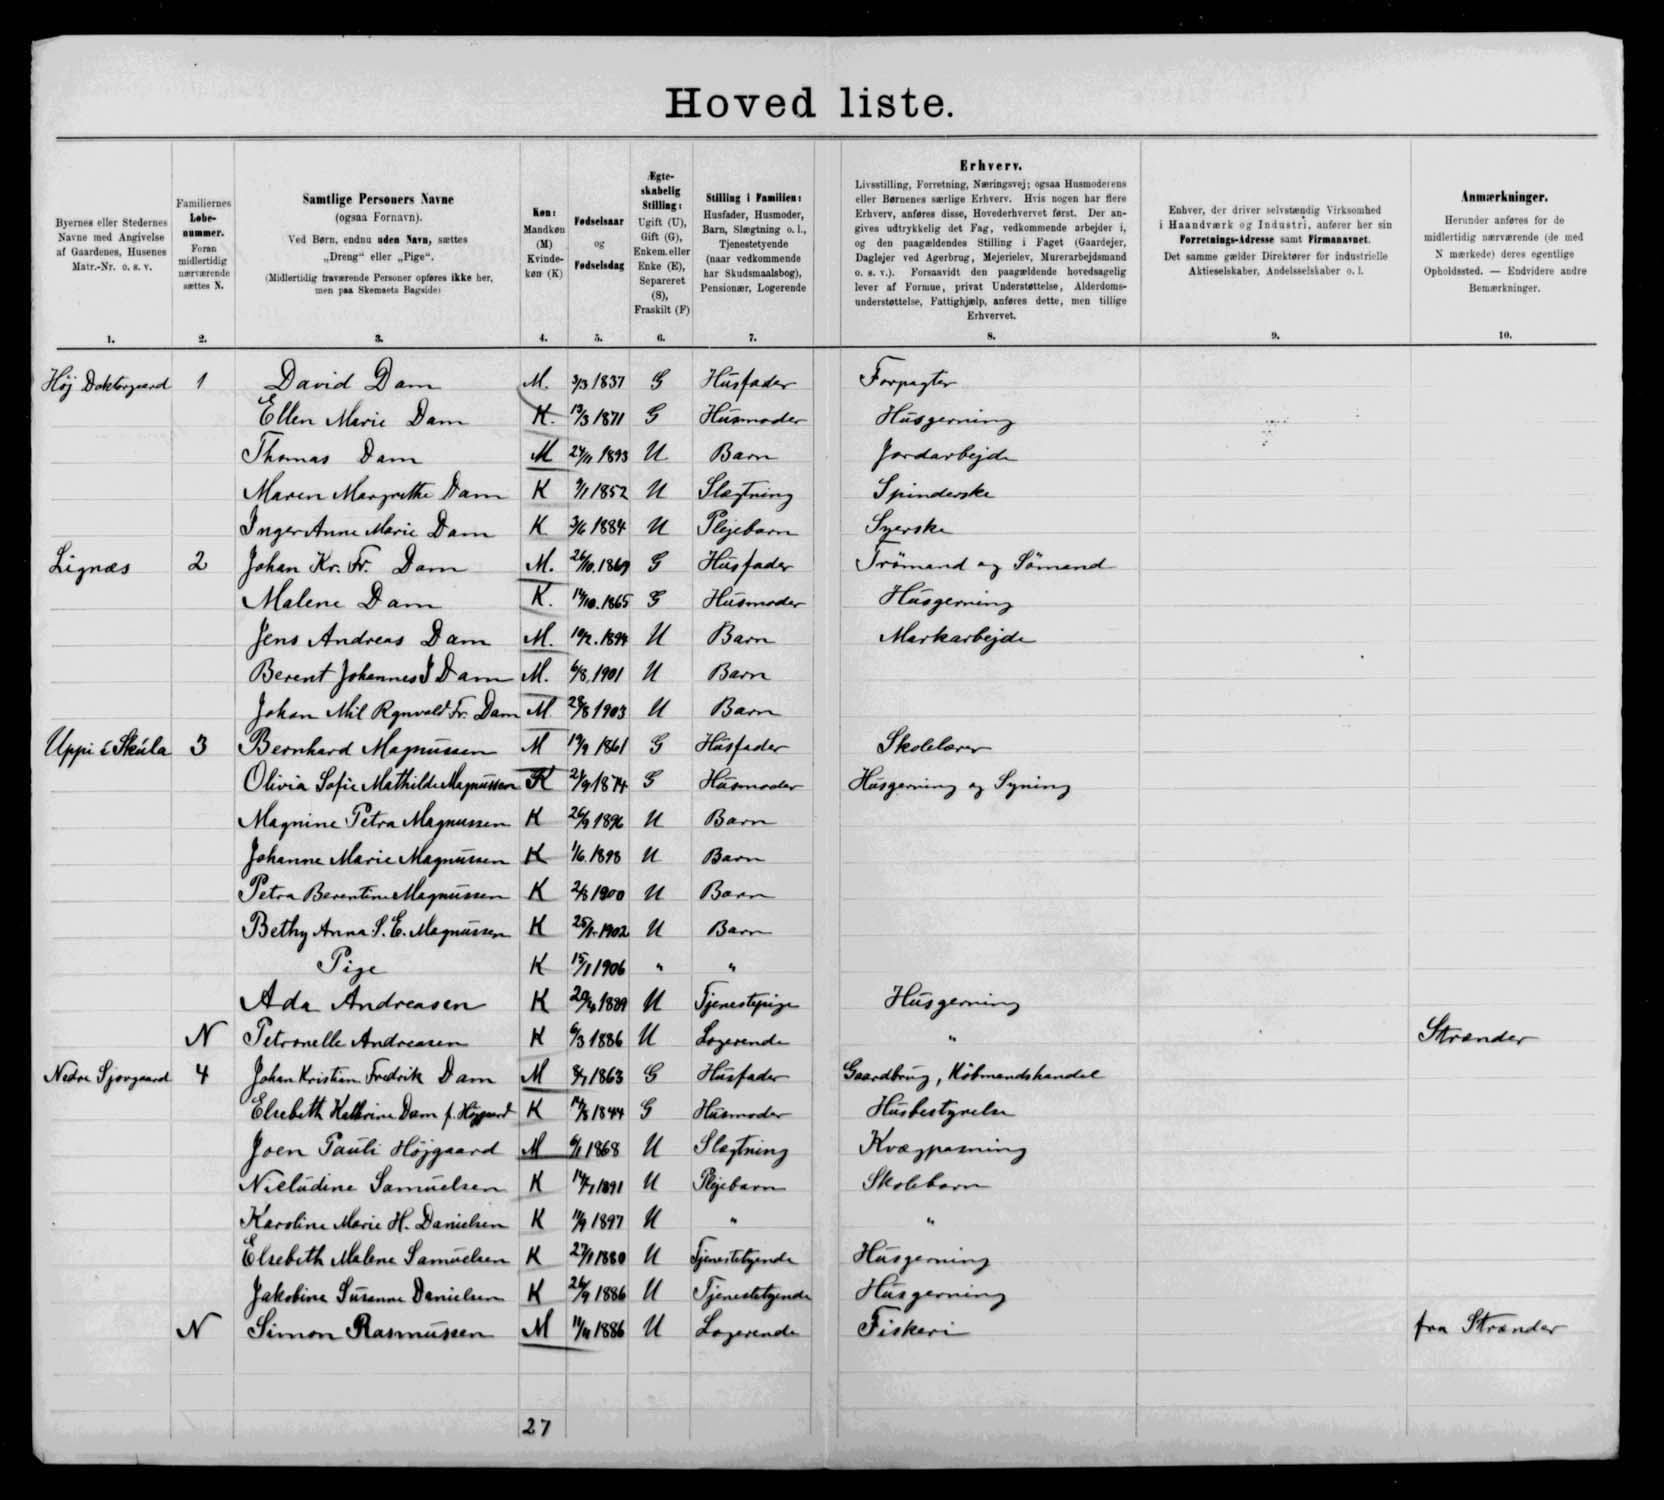 Hoved liste.
Byernes eller Stedernes
Navne med Angivelse
af Gaardenes, Husenes
Matr.-Nr. o. s. v.
1.
Familiernes
Løbe-
nummer.
Foran
midlertidig
nærværende
sættes N.
2.
Samtlige Personers Navne
(ogsaa Fornavn).
Ved Børn, endnu uden Navn, sættes
„Dreng“ eller „Pige“.
(Midlertidig fraværende Personer opføres ikke her,
men paa Skemaets Bagside)
3.
Køn:
Mandkøn
(M)
Kvinde-
køn (K)
4.
Fødselsaar
og
Fødselsdag
5.
Ægte-
skabelig
Stilling:
Ugift (U),
Gift (G),
Enkem. eller
Enke (E),
Separeret
(S),
Fraskilt (F)
6.
Stilling i Familien:
Husfader, Husmoder,
Barn, Slægtning o. l.,
Tjenestetyende
(naar vedkommende
har Skudsmaalsbog),
Pensionær, Logerende
7.
Erhverv.
Livsstilling, Forretning, Næringsvej; ogsaa Husmoderens
eller Børnenes særlige Erhverv. Hvis nogen har flere
Erhverv, anføres disse, Hovederhvervet først. Der an-
gives udtrykkelig det Fag, vedkommende arbejder i,
og den paagældendes Stilling i Faget (Gaardejer,
Daglejer ved Agerbrug, Mejerielev, Murerarbejdsmand
o. s. v.). Forsaavidt den paagældende hovedsagelig
lever af Formue, privat Understøttelse, Alderdoms-
understøttelse, Fattighjælp, anføres dette, men tillige
Erhvervet.
8.
Enhver, der driver selvstændig Virksomhed
i Haandværk og Industri, anfører her sin
Forretnings-Adresse samt Firmanavnet.
Det samme gælder Direktører for industrielle
Aktieselskaber, Andelsselskaber o. l.
9.
Anmærkninger.
Herunder anføres for de
midlertidig nærværende (de med
N mærkede) deres egentlige
Opholdssted. — Endvidere andre
Bemærkninger.
10.
Høj Doktorgaard 1 David Dam M. 3/3 1837 G Husfader Forpagter
Ellen Marie Dam K. 19/3 1871 G Husmoder Husgerning
Thomas Dam M 24/11 1893 U Barn Jordarbejde
Maren Margrethe Dam K 9/1 1852 U Slægtning Spinderske
Inger Anne Marie Dam K. 3/6 1884 U Plejebarn Syerske
Lignæs 2 Johan Kr. Fr. Dam M. 26/10. 1869 G Husfader Trömand og Sömand
Malene Dam K. 14/10. 1865 G Husmoder Husgerning
Jens Andreas Dam M. 19/2. 1894 U Barn Markarbejde
Berent Johannes J Dam M. 6/8. 1901 U Barn
Johan Mil Rgnvald Fr. Dam M. 28/8 1903 U Barn
Uppi i Skúla 3 Bernhard Magnussen M 19/9 1861 G Husfader Skolelærer
Olivia Sofie Mathilde Magnussen K 21/9 1874 G Husmoder Husgerning og Syning
Magnine Petra Magnussen K 26/9 1896 U Barn
Johanne Marie Magnussen K 1/6. 1898 U Barn
Petra Berentine Magnussen K 2/3 1900 U Barn
Bethy Anna S. E. Magnussen K 25/1. 1902 U Barn
Pige K 15/1 1906 " "
Ada Andreasen K 20/4 1889 U Tjenestepige Husgerning
N Petronelle Andreasen K 6/3 1886 U Logerende " Strænder
Nedre Sjovgaard 4 Johan Kristian Fredrik Dam M 8/7 1863 G Husfader Gaardbrug, Købmandshandel
Elsebeth Kathrine Dam f. Højgaard K 14/8 1844 G Husmoder Husbestyrelse
Joen Pauli Højgaard M 6/1 1868 U Slægtning Kvægpasning
Nieludine Samuelsen K 14/7 1891 U Plejebarn Skolebarn
Karoline Marie H. Danielsen K 11/9 1897 U " "
Elsebeth Malene Samuelsen K 27/1 1880 U Tjenestetyende Husgerning
Jakobine Susanne Danielsen K 26/9 1886 U Tjenestetyende Husgerning
N Simon Rasmussen M 11/11 1886 U Logerende Fiskeri fra Strænder
27